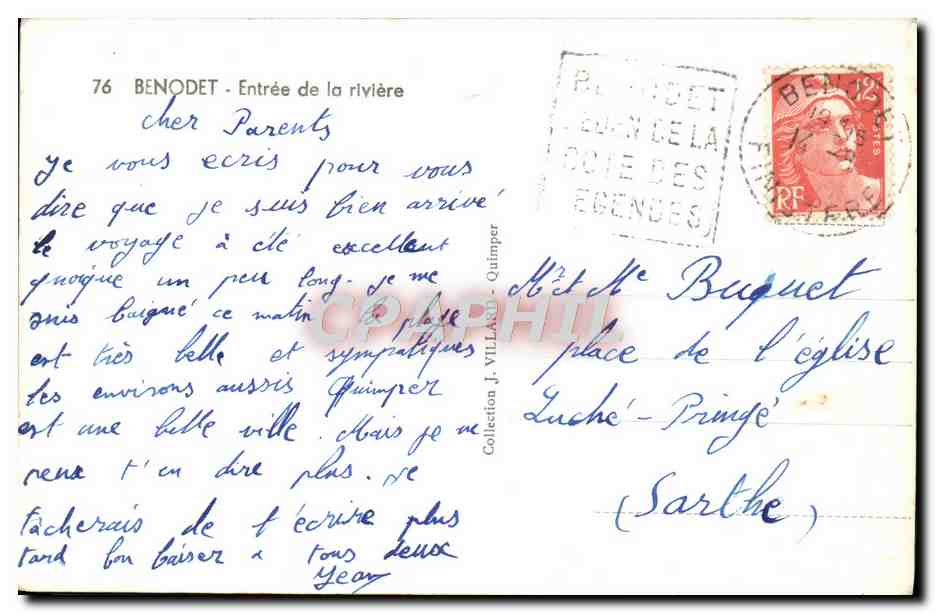 76 BENODET - Entrée de la rivière
cher Parents
Je vous ecris pour vous
dire que je suis bien arrivé
le voyage à été excellent
quoique un peu long. je me
suis baigné ce matin la plage
est très belle et sympatiques
les environs aussis Quimper
est une belle ville. Mais je ne
peux t'en dire plus. Je
tâcherais de t'écrire plus
tard bon baiser a tous deux
Jean
Collection J. VILLARD - Quimper
BENODET
EDEN DE LA
COTE DES
LEGENDES
BENODET
FINISTERE
12
POSTES
RF
Mr et Me Buquet
place de l'église
Luché-Pringé
(Sarthe)
CPAPHIL